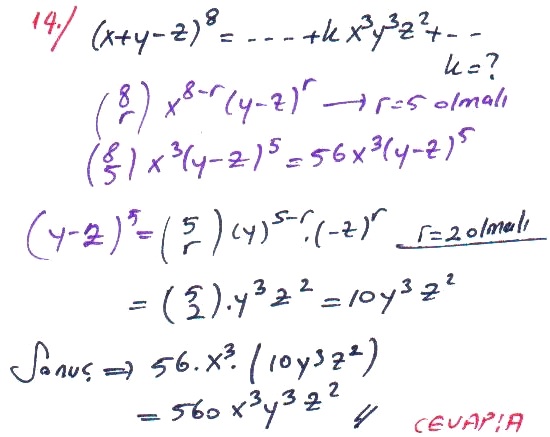 14./ (x+y-z)^8 = ---- +k x^3y^3z^2+--
k=?
(8 r) x^8-r (y-z)^r → r=5 olmalı
(8 5) x^3(y-z)^5 = 56x^3(y-z)^5
(y-z)^5 = (5 r) (y)^5-r . (-z)^r r=2 olmalı
= (5 2) . y^3 z^2 = 10y^3 z^2
Sonuç ⇒ 56. x^3. (10y^3z^2)
= 560 x^3y^3z^2 //
CEVAP:A